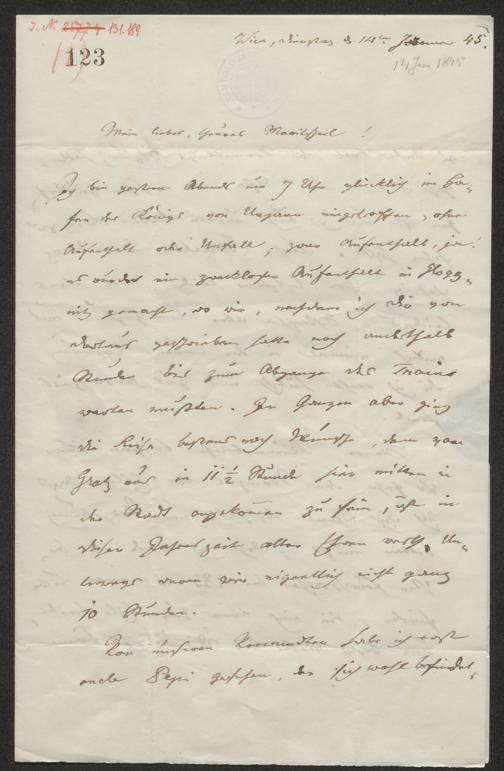 I. N. 131.189
123
Wien, Dienstag d. 14ten Januar 45.
14 Jan 1845
Mein lieber, theurer !
Ich bin gestern Abends um 7 Uhr glücklich im Ha-
fen des Königs von Ungarn eingetroffen, ohne
Aufenthalt oder Unfall; zwar Aufenthalt, ja!
es wurde ein zweckloser Aufenthalt in Glogg-
nitz gemacht, wo wir, nachdem ich Dir von
dortaus geschrieben hatte noch anderthalb
Stunden bis zum Abgange des Trains
warten mußten. Im Ganzen aber ging
die Reise bestens nach Wunsche, denn von
Gratz aus in 11 1/2 Stunde hier mitten in
der Stadt angekommen zu sein, ist in
dieser Jahreszeit aller Ehren werth. Un-
terwegs waren wir eigentlich nicht ganz
10 Stunden.
Von unseren Verwandten habe ich erst
Pepi gesehen, der sich wohl befindet,